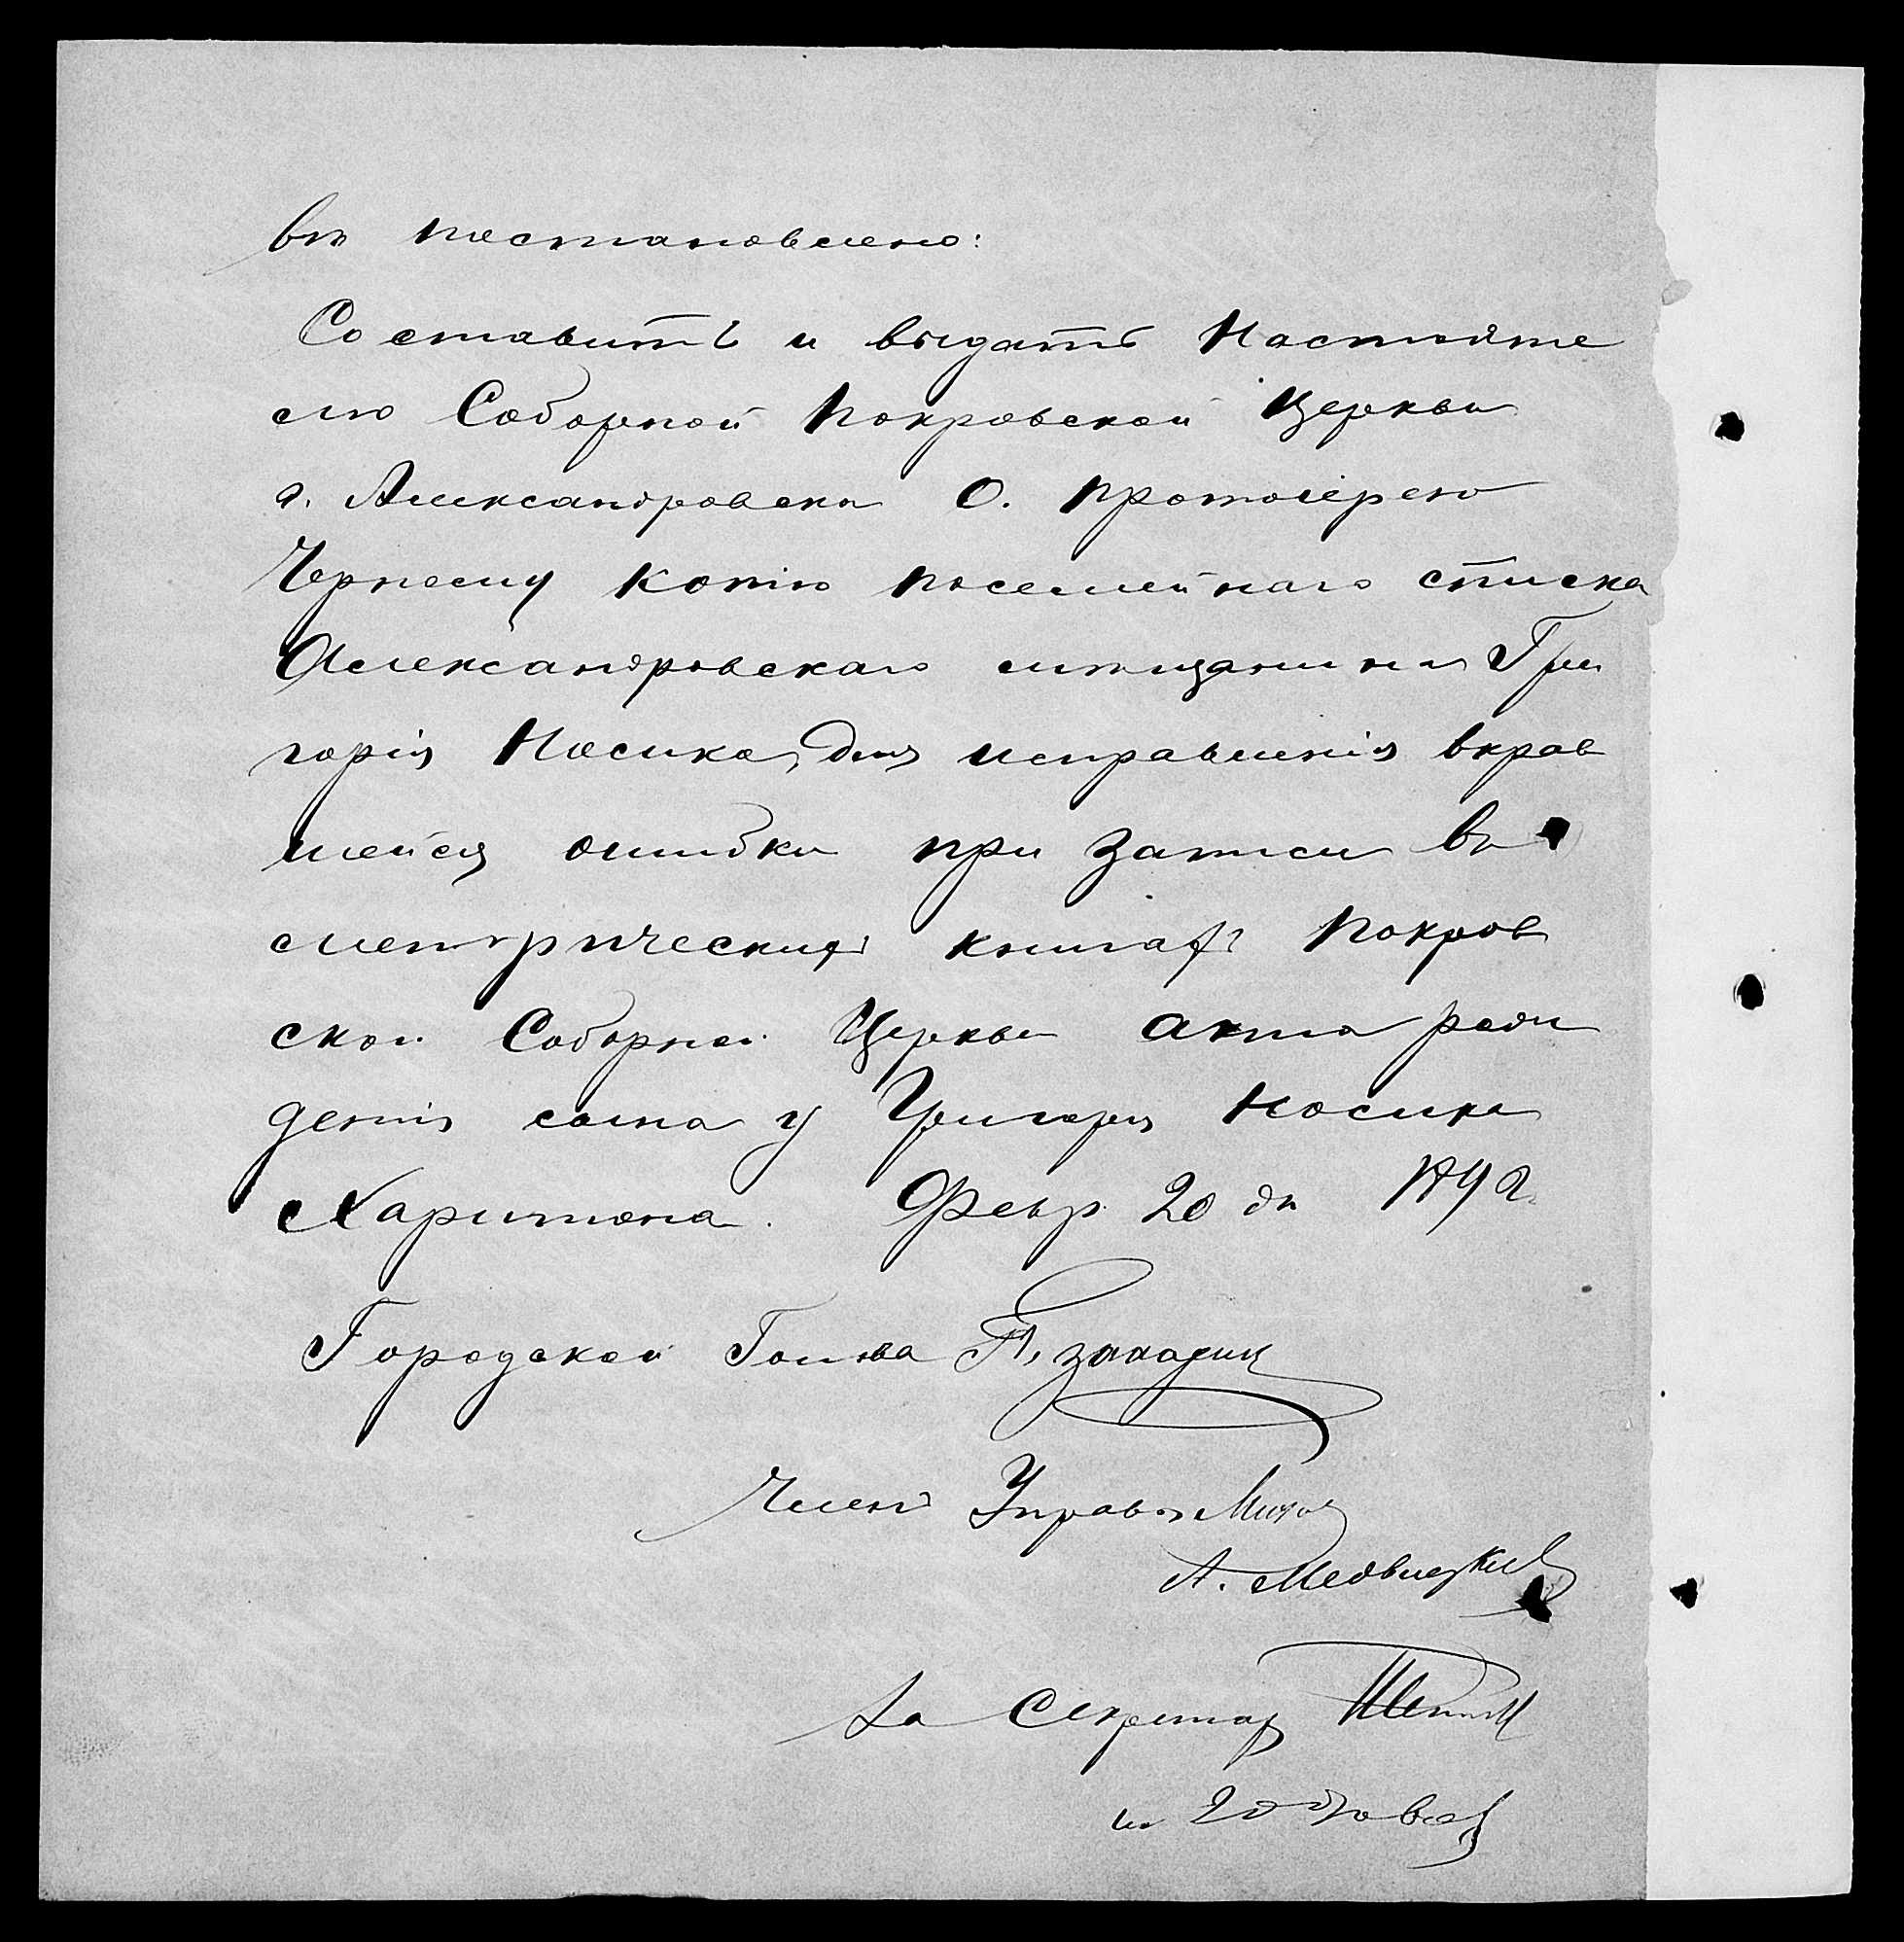 въ постановлено:
Составить и выдать Настояте
лю Соборной Покровской Церкви
г. Александровска О. Протоіерею
Чернесу копію посемейнаго списка
Александровскаго мѣщанина Гри
горія Носика, для исправленія вкрав
шейся ошибки при записи въ
метрическихъ книгахъ Покров
ской Соборной Церкви акта рож
денія сына у Григорія Носика
Харитона. Февр. 20 дн
Городской Голова
Членъ Управы
А.
За Секретаря